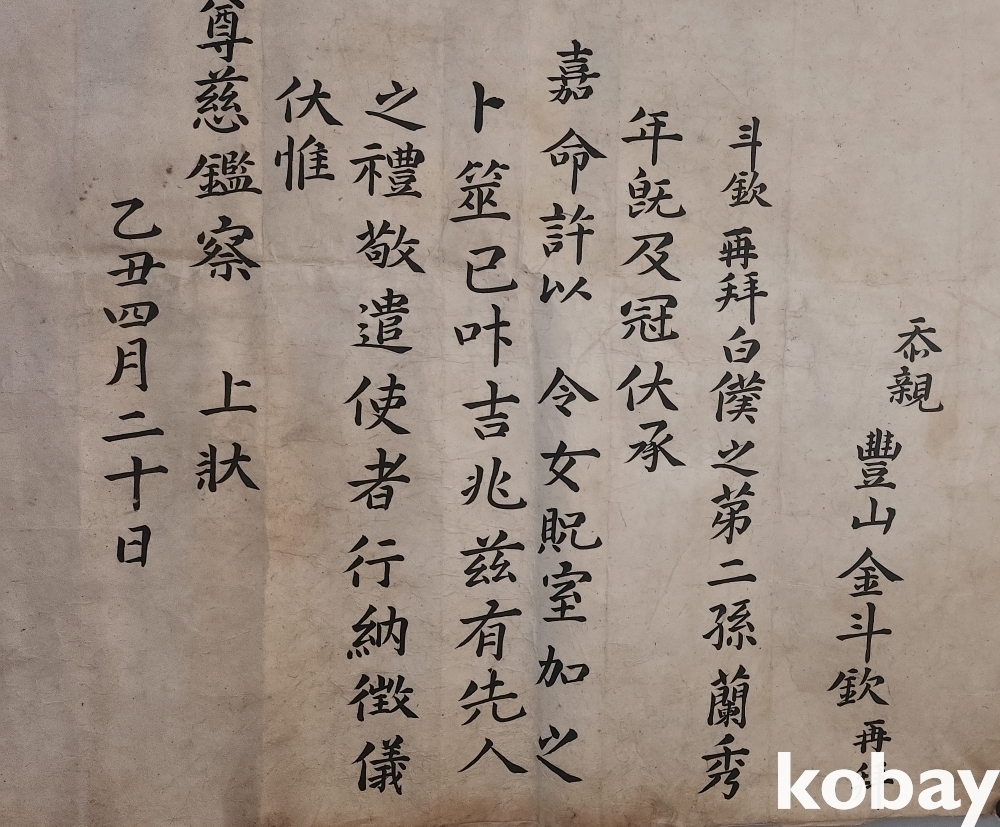 忝親
豐山金斗欽再
斗欽 再拜白僕之苐二孫蘭秀
年旣及冠伏承
嘉命許以 令女貺室加之
卜筮已叶吉兆玆有先人
之禮敬遣使者行納徵儀
伏惟
尊慈鑑察 上狀
乙丑四月二十日
kobay